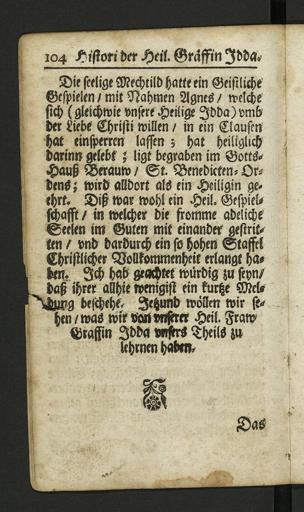 104 Histori der Heil. Gräffin Idda.
Die seelige Mechtild hatte ein Geistliche
Gespielen / mit Nahmen Agnes / welche
sich (gleichwie vnsere Heilige Idda) vmb
der Liebe Christi willen / in ein Clausen
hat einsperren lassen ; hat heiliglich
darinn gelebt ; ligt begraben im Gotts-
Hauß Berauw / St. Benedicten-Or-
dens ; wird alldort als ein Heiligin ge-
ehrt. Diß war wohl ein Heil. Gespiel-
schafft / in welcher die fromme adeliche
Seelen im Guten mit einander gestrit-
ten / vnd dardurch ein so hohen Staffel
Christlicher Vollkommenheit erlangt ha-
ben. Ich hab geachtet würdig zu seyn/
daß ihrer allhie wenigist ein kurtze Mel-
dung beschehe. Jetzund wöllen wir se-
hen / was wir von vnserer Heil. Fraw
Gräffin Idda vnsers Theils zu
lehrnen haben.
Das